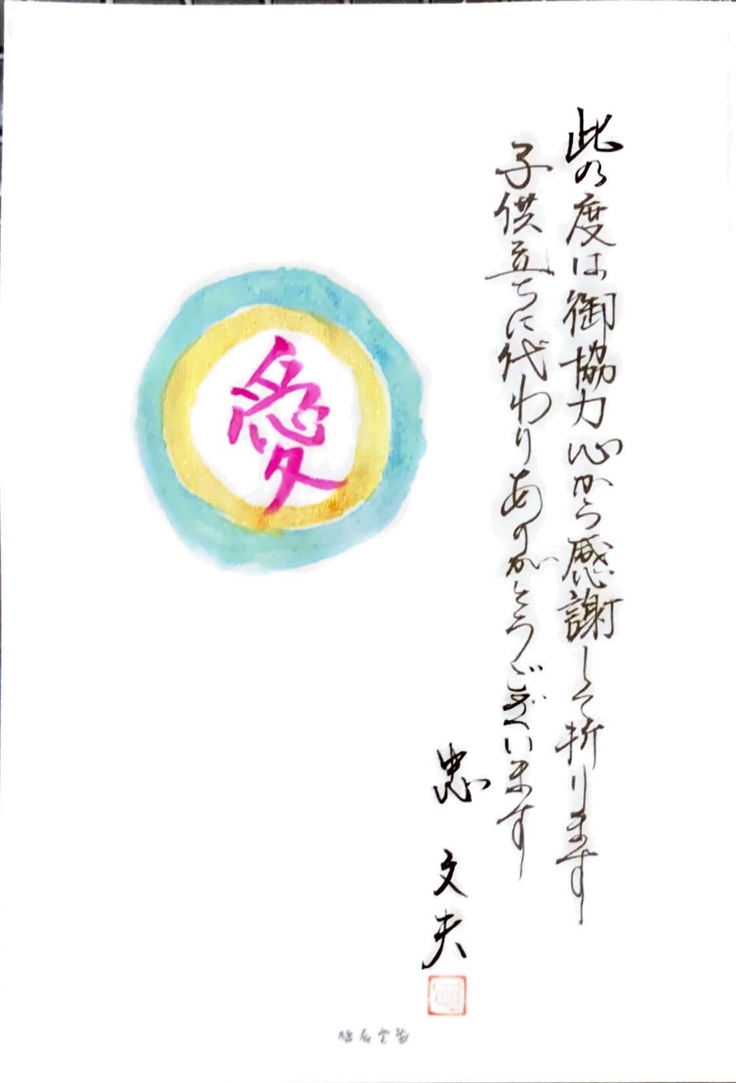 此の度は御協力心から感謝して祈ります
子供立ちに代わりありがとうございます
忠 文夫
愛